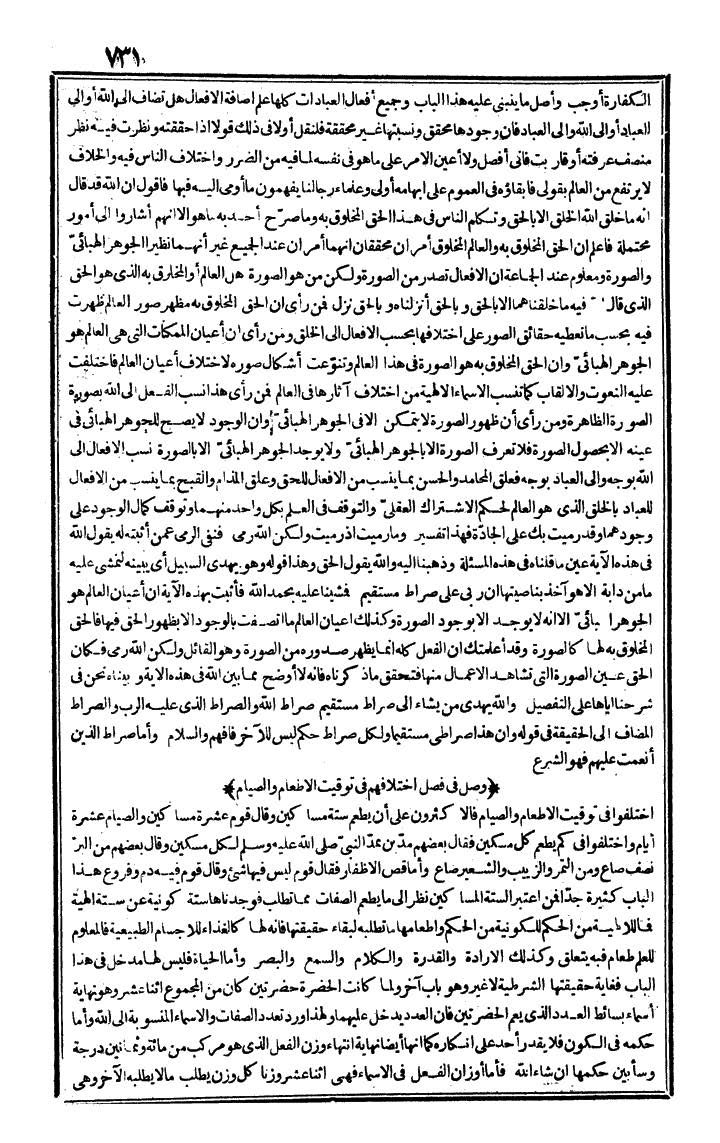 ٧٣١
الكفارة أوجب وأصل ما ينبني عليه هذا الباب وجميع أفعال العبادات كلها علم اضافة الافعال هل تضاف الى الله أو الى
العباد أو الى الله والى العباد فان وجودها محقق ونسبتها غير محققة فلنقل أولا فى ذلك قولا اذا حققته ونظرت فيه نظر
منصف عرفته أو قاربت فانى أفصل ولا أعين الامر على ما هو فى نفسه لما فيه من الضرر واختلاف الناس فيه والخلاف
لا يرتفع من العالم بقولى فابقاؤه فى العموم على ابهامه أولى وعلماء رجالنا يفهمون ما أومى اليه فيها فاقول ان الله قد قال
انه ما خلق الله الخلق الا بالحق وتكلم الناس فى هذا الحق المخلوق به وما صرح أحد به ما هو الا انهم أشاروا الى أمور
محتملة فاعلم ان الحق المخلوق به والعالم المخلوق أمر ان محققان انهما أمران عند الجميع غير أنهما نظيرا الجوهر الهبائىّ
والصورة ومعلوم عند الجماعة ان الافعال تصدر من الصورة ولكن من هو الصورة هل العالم أو المخلوق به الذى هو الحق
الذى قال فيه ما خلقناهما الا بالحق و بالحق أنزلناه و بالحق نزل فمن رأى ان الحق المخلوق به مظهر صور العالم ظهرت
فيه بحسب ما تعطيه حقائق الصور على اختلافها بحسب الافعال الى الخلق ومن رأى ان أعيان الممكنات التى هى العالم هو
الجوهر الهبائىّ وان الحق المخلوق به هو الصورة فى هذا العالم وتنوّعت أشكال صوره لاختلاف أعيان العالم فاختلفت
عليه النعوت والالقاب كما تنسب الاسماء الالهية من اختلاف آثارها فى العالم فمن رأى هذا نسب الفعل الى الله بصورة
الصورة الظاهرة ومن رأى أن ظهور الصورة لا يتمكن الا فى الجوهر الهبائىّ وان الوجود لا يصح للجوهر الهبائى فى
عينه الا بحصول الصورة فلا تعرف الصورة الا بالجوهر الهبائىّ ولا يوجد الجوهر الهبائىّ الا بالصورة نسب الافعال الى
الله بوجه والى العباد بوجه فعلق المحامد والحسن بما ينسب من الافعال للحق وعلق المذام والقبح بما ينسب من الافعال
للعباد بالخلق الذى هو العالم لحكم الاشتراك العقلىّ والتوقف فى العلم بكل واحد منهما وتوقف كمال الوجود على
وجودهما وقد رميت بك على الجادّة فهذا تفسير وما رميت اذ رميت ولكن الله رمى فنفى الرمى عمن أثبته له يقول الله
فى هذه الآية عين ما قلناه فى هذه المسئلة وذهبنا اليه والله يقول الحق وهذا قوله وهو يهدى السبيل أى يبينه لنمشى عليه
ما من دابة الا هو آخذ بناصيتها ان ربى على صراط مستقيم فمشينا عليه بحمد الله فأثبت بهذه الآية ان أعيان العالم هو
الجوهر ا بائىّ الا انه لا يوجد الا بوجود الصورة وكذلك اعيان العالم ما اتصفت بالوجود الا بظهور الحق فيها فالحق
المخلوق به لها كالصورة وقد أعلمتك ان الفعل كله انما يظهر صدوره من الصورة وهو القائل ولكن الله رمى فكان
الحق عين الصورة التى تشاهد الاعمال منها فتحقق ماذكرناه فانه لا أوضح مما بين الله فى هذه الآية و بيناه نحن فى
شرحنا اياها على التفصيل والله يهدى من يشاء الى صراط مستقيم صراط الله والصراط الذى عليه الرب والصراط
المضاف الى الحقيقة فى قوله وان هذا صراطى مستقيما ولكل صراط حكم ليس للآخر فافهم والسلام وأما صراط الذين
أنعمت عليهم فهو الشرع
﴿وصل فى فصل اختلافهم فى توقيت الاطعام والصيام﴾
اختلفوا فى توقيت الاطعام والصيام فالاكثرون على أن يطعم ستة مساكين وقال قوم عشرة مساكين والصيام عشرة
أيام واختلفوا فى كم يطعم كل مسكين فقال بعضهم مدّين بمدّ النبىّ صلى الله عليه وسلم لكل مسكين وقال بعضهم من البرّ
نصف صاع ومن التمر والزبيب والشعير صاع وأما قص الاظفار فقال قوم ليس فيها شئ وقال قوم فيه دم وفروع هذا
الباب كثيرة جدّا فمن اعتبر الستة المساكين نظر الى ما يطعم الصفات مما تطلب فوجدناها ستة كونية عن ستة الهية
فما للالهية من الحكم للكونية من الحكم واطعامها ما تطلبه لبقاء حقيقتها فانه لها كالغذاء للاجسام الطبيعية فالمعلوم
للعلم طعام فبه يتعلق وكذلك الارادة والقدرة والكلام والسمع والبصر وأما الحياة فليس لها مدخل فى هذا
الباب فغاية حقيقتها الشرطية لا غير وهو باب آخر ولما كانت الحضرة حضرتين كان من المجموع اثنا عشر وهو نهاية
أسماء بسائط العدد الذى يعم الحضرتين فان العدد يدخل عليهما ولهذا ورد تعدد الصفات والاسماء المنسوبة الى الله وأما
حكمه فى الكون فلا يقدر أحد على انكاره كما انها أيضا نهاية انتهاء وزن الفعل الذى هو مركب من مائة وثمانين درجة
وسأبين حكمها ان شاء الله فأما أوزان الفعل فى الاسماء فهى اثنا عشر وزنا كل وزن يطلب ما لا يطلبه الآخر وهى